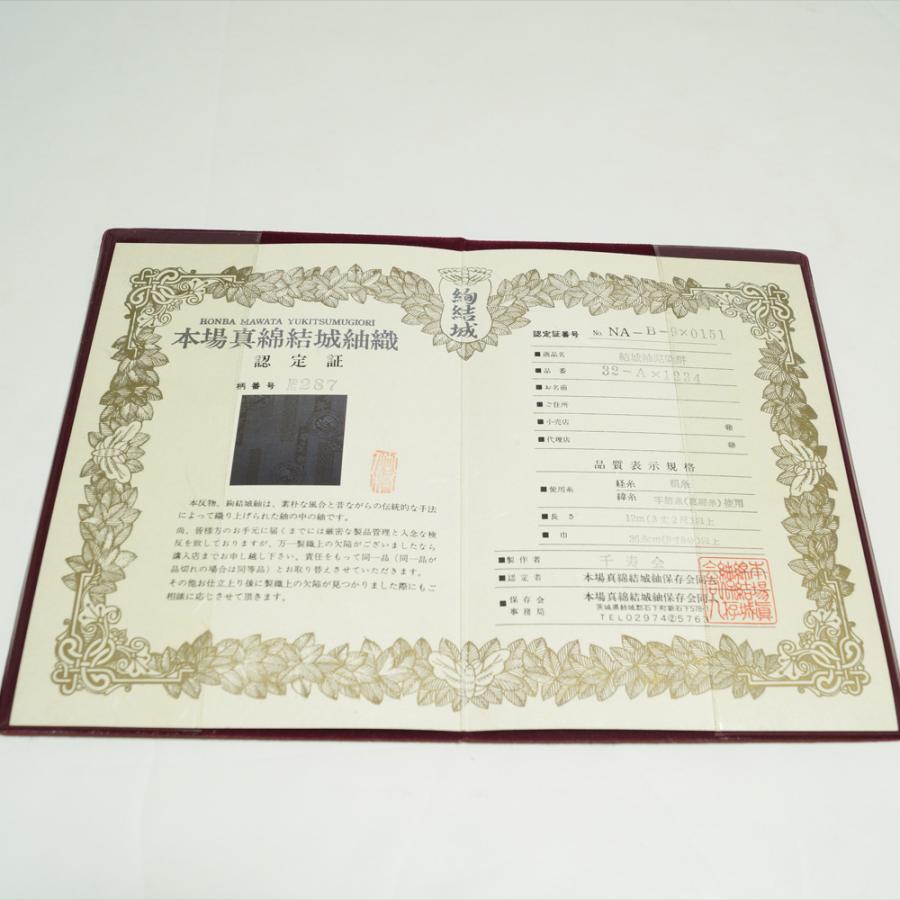 絢結城
HONBA MAWATA YUKITSUMUGIORI
本場真綿結城紬織
認定証
柄番号 287
本反物、絢結城紬は、素朴な風合と昔ながらの伝統的な手法
によって織り上げられた紬の中の紬です。
尚、皆様方のお手元に届くまでには厳密な製品管理と入念な検
反を致しておりますが、万一製織上の欠陥がございましたなら
購入店までお申し越し下さい。責任をもって同一品(同一品が
品切れの場合は同等品)とお取り替えさせていただきます。
その他お仕立上り後に製織上の欠陥が見つかりました際にもご
相談に応じさせて頂きます。
認定証番号 No. NA-B-9×0151
■商品名
■品番 32-A×1234
■お名前
■ご住所
■小売店 ㊞
■代理店 ㊞
品質表示規格
■使用糸 経糸 絹糸
緯糸 手紡糸(真綿糸)使用
■長さ 12m(3丈2尺)以上
■巾 以上
■製作者 千寿会
■認定者 本場真綿結城紬保存会同人
■保存会事務局 本場真綿結城紬保存会同人
茨城県結城郡石下町新石下578-1
TEL02974②5763
本場眞綿結城紬保存会同人